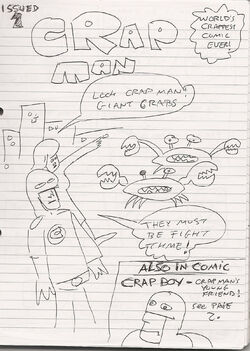 ISSUED
1
CRAP
MAN
WORLD'S
CRAPPEST
COMIC
EVER!
LOOK CRAP MAN!
GIANT CRABS
THEY MUST
BE FIGHT
THME!
ALSO IN COMIC
CRAP BOY - CRAP MAN'S
YOUNG
FRIEND!
SEE PAGE
2.